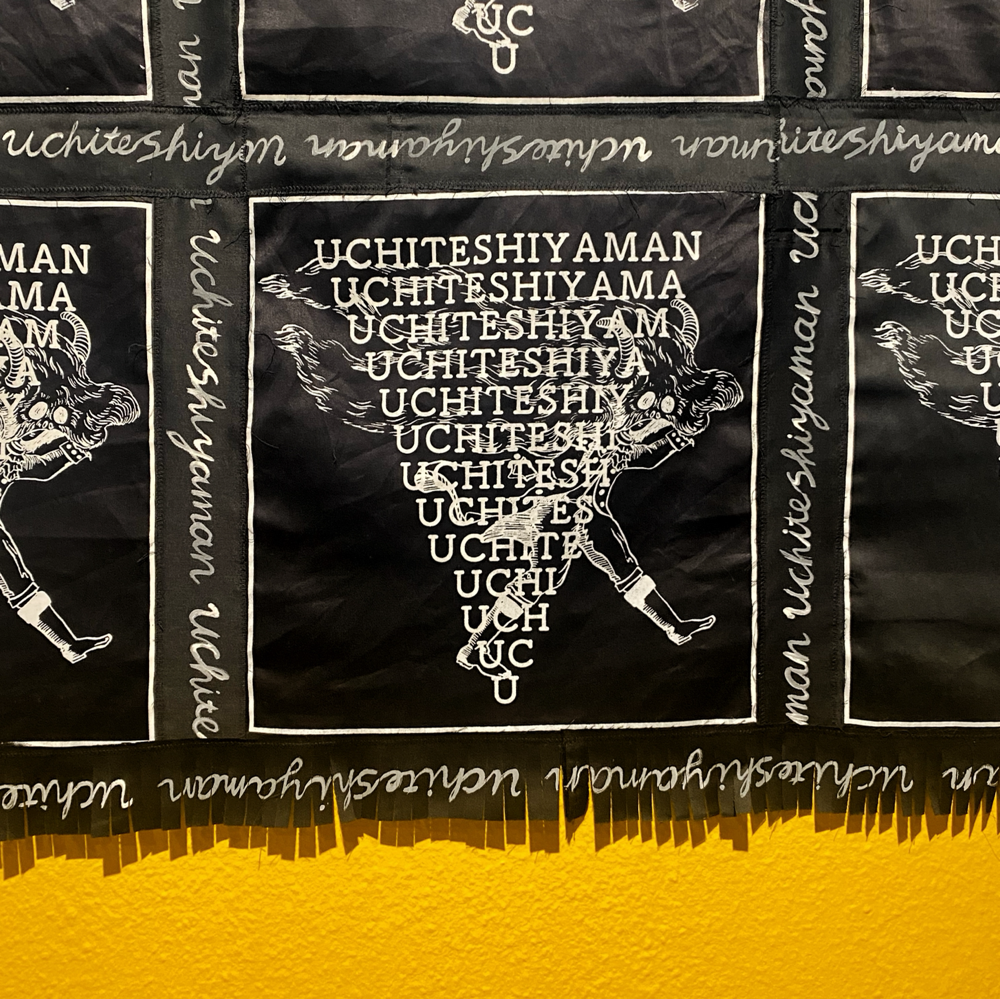 UC
U
uchiteshiyaman uchiteshiyaman uchiteshiyama
MAN
AMA
AM
YA
UCHITESHIYAMAN
UCHITESHIYAMA
UCHITESHIYAM
UCHITESHIYA
UCHITESHIY
UCHITESHI
UCHITESH
UCHITES
UCHITE
UCHI
UCH
UC
U
UCH
UCH
UC
UC
U
uchiteshiyaman uchite
man uchiteshiyaman uch
uchite
uchiteshiyaman
uchiteshiyaman